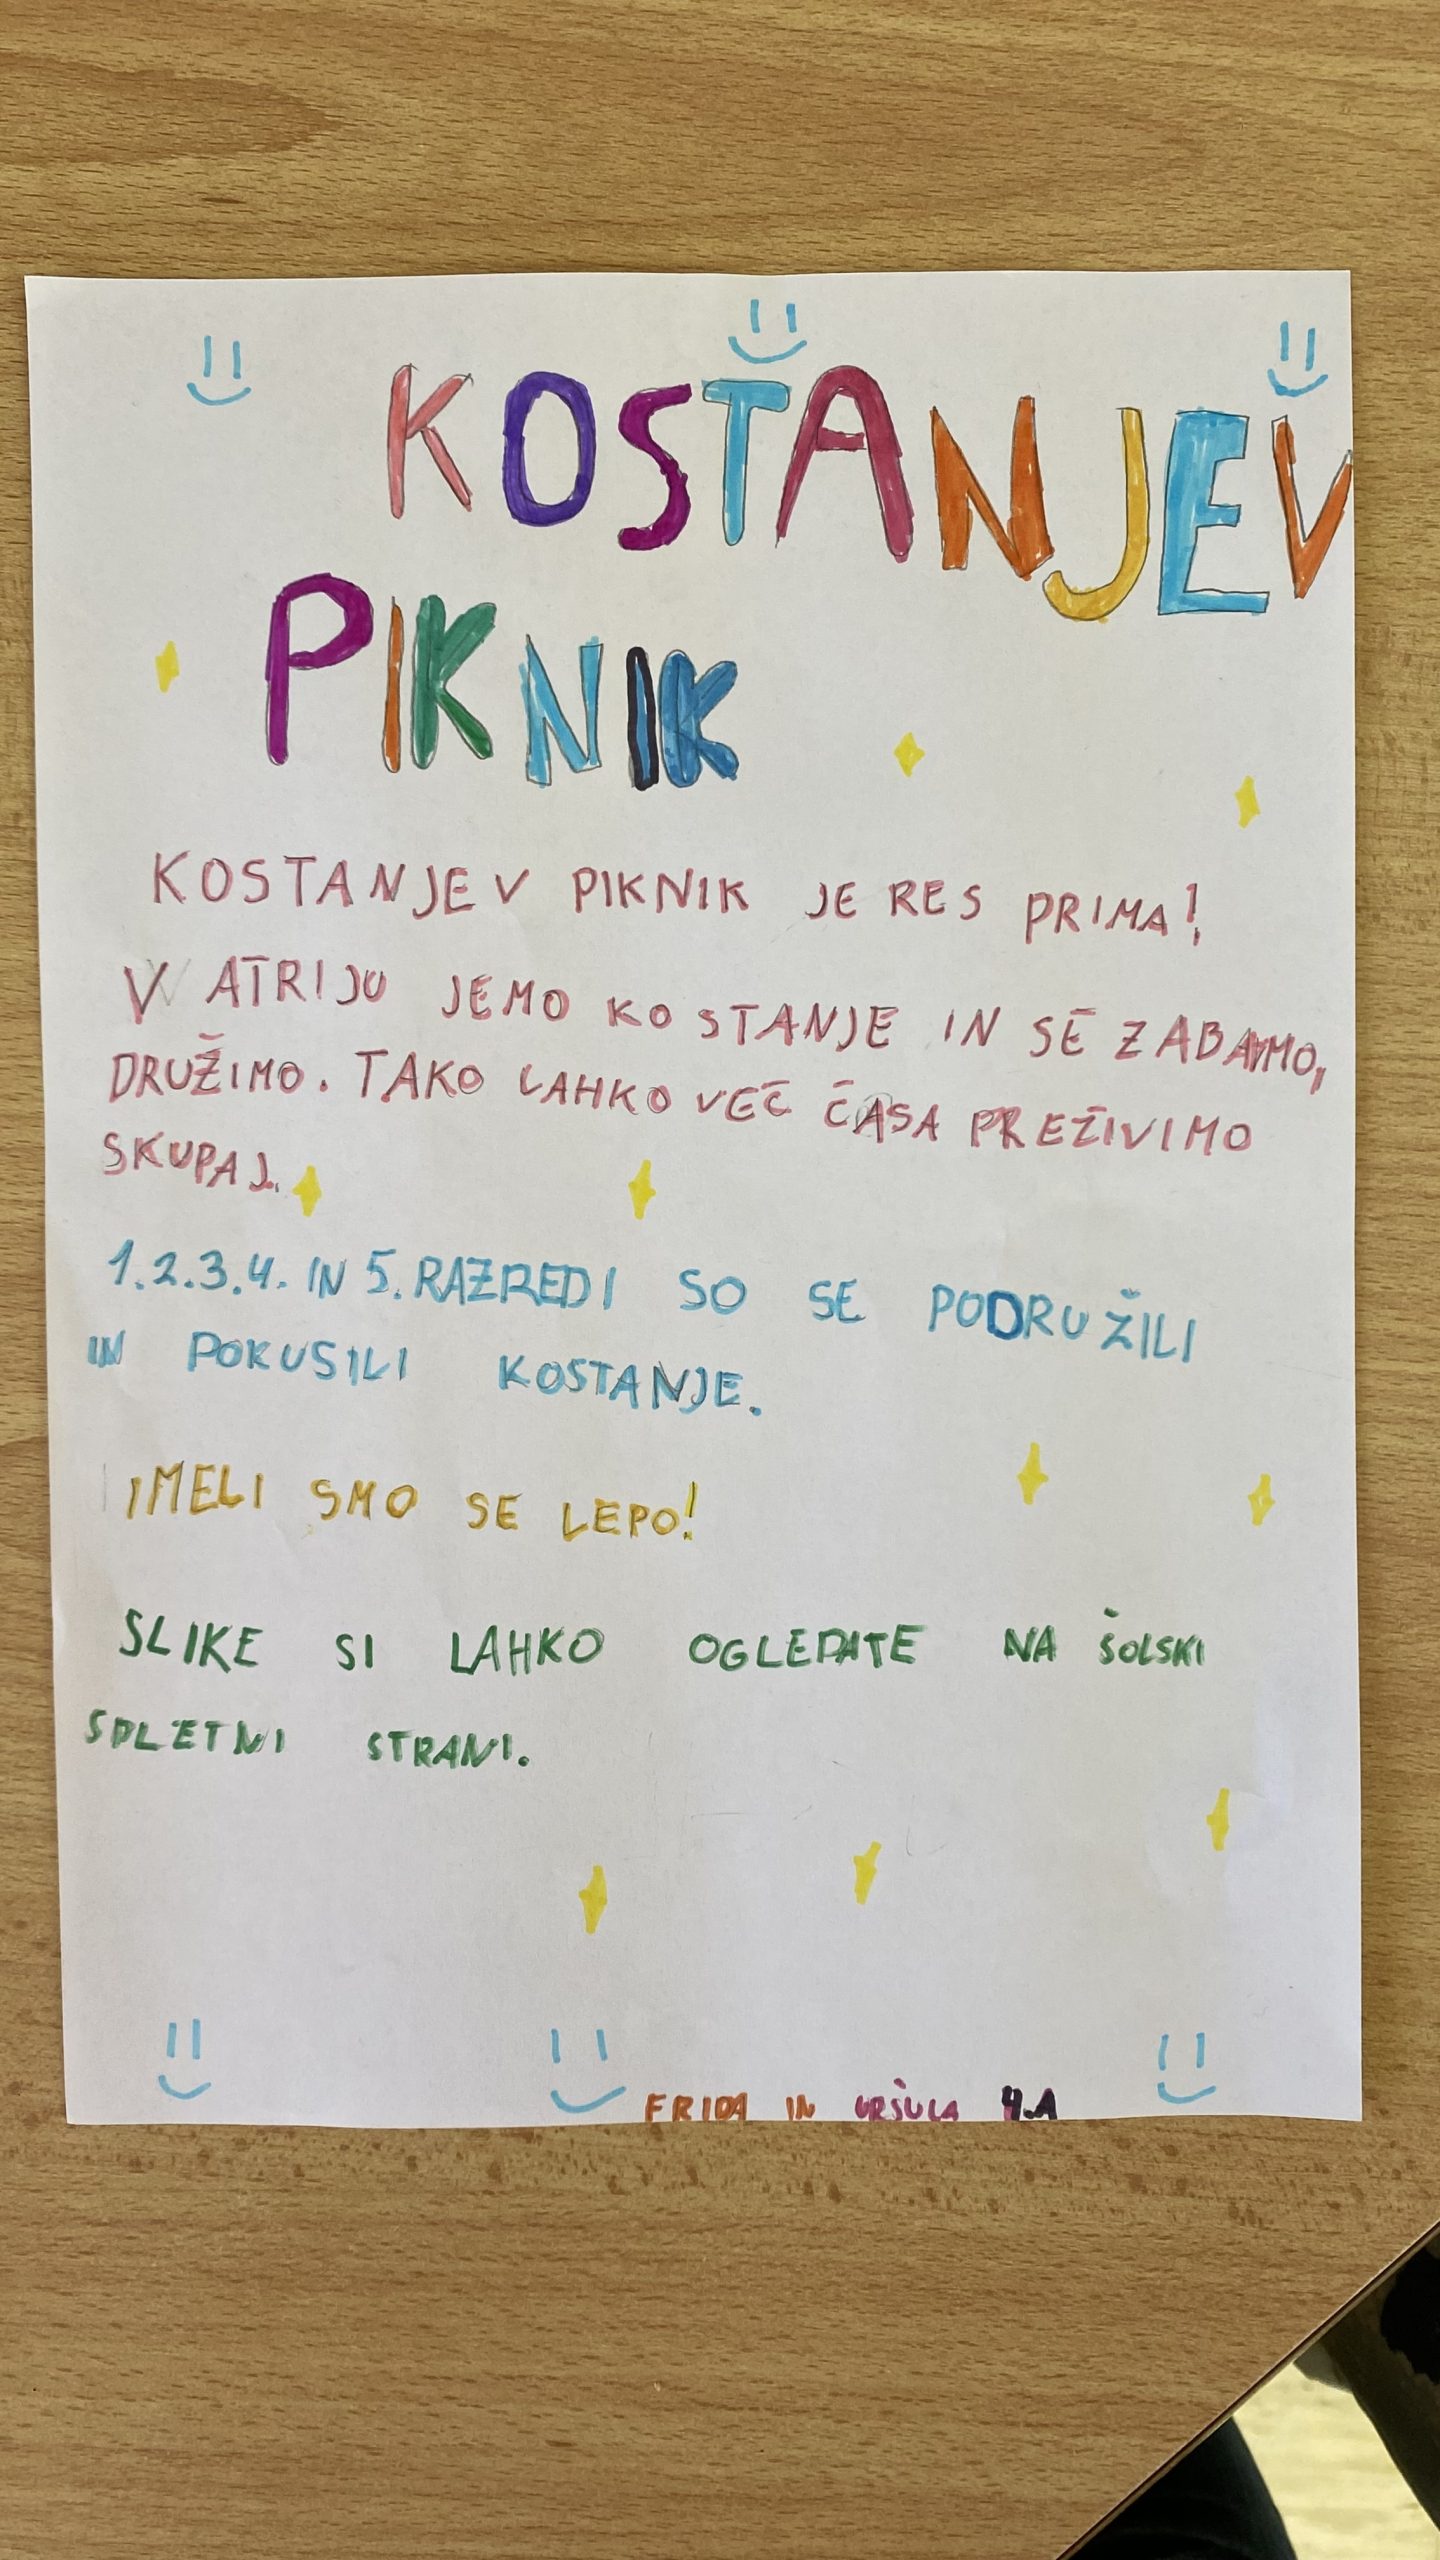 KOSTANJEV
PIKNIK
KOSTANJEV PIKNIK JE RES PRIMA!
V ATRIJU JEMO KOSTANJE IN SE ZABAVAMO,
DRUŽIMO. TAKO LAHKO VEČ ČASA PREŽIVIMO
SKUPAJ.
1.2.3.4. IN 5. RAZREDI SO SE PODRUŽILI
IN POKUSILI KOSTANJE.
IMELI SMO SE LEPO!
SLIKE SI LAHKO OGLEDATE NA ŠOLSKI
SPLETNI STRANI.
FRIDA IN URŠULA 4.A